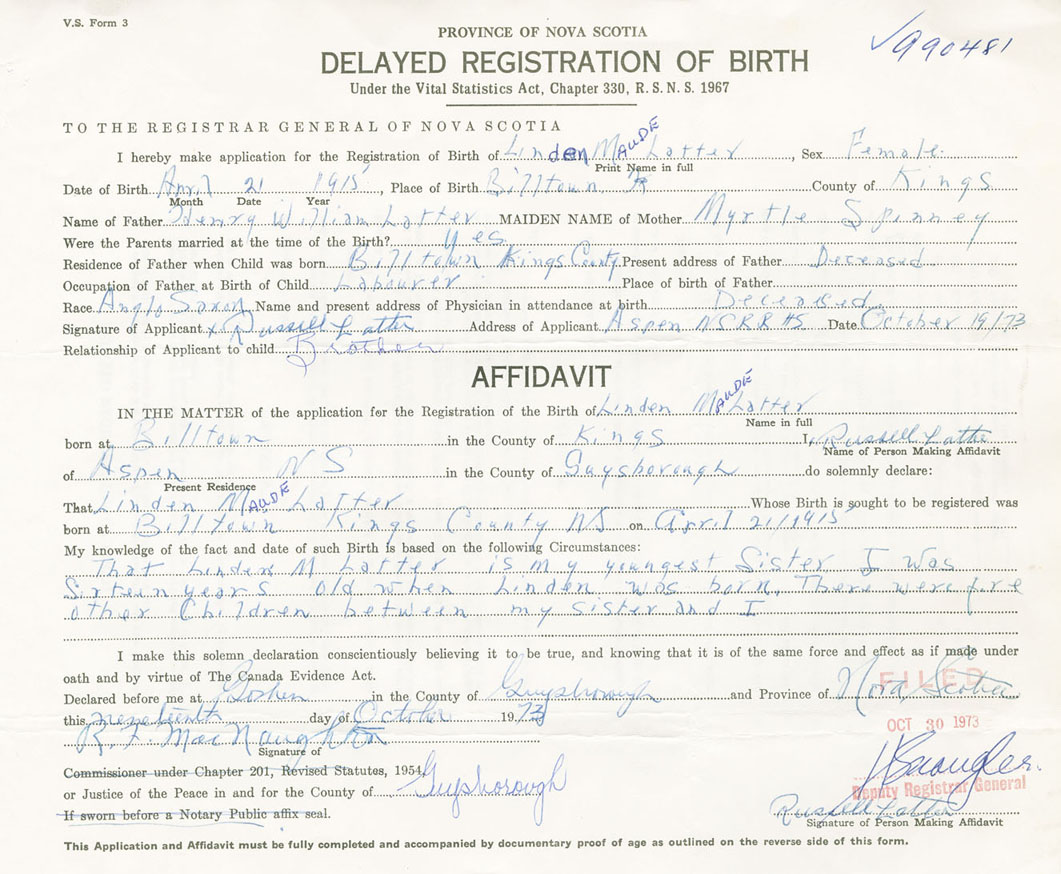 V.S. Form 3
PROVINCE OF NOVA SCOTIA
√990481
DELAYED REGISTRATION OF BIRTH
Under the Vital Statistics Act, Chapter 330, R. S. N. S. 1967
TO THE REGISTRAR GENERAL OF NOVA SCOTIA
I hereby make application for the Registration of Birth of Linden MAUDE Latter, Sex Female
Print Name in full
Date of Birth April 21 1915, Place of Birth Billtown County of Kings
Month Date Year
Name of Father Henry William Latter MAIDEN NAME of Mother Myrtle Spinney
Were the Parents married at the time of the Birth? yes
Residence of Father when Child was born Billtown Kings County Present address of Father Deceased
Occupation of Father at Birth of Child Labourer Place of birth of Father
Race Anglo Saxon Name and present address of Physician in attendance at birth Deceased
Signature of Applicant x Russell Latter Address of Applicant Aspen NS RR #5 Date October 19/73
Relationship of Applicant to child Brother
AFFIDAVIT
IN THE MATTER of the application for the Registration of the Birth of Linden MAUDE Latter
Name in full
born at Billtown in the County of Kings I, Russell Latter
Name of Person Making Affidavit
of Aspen NS in the County of Guysborough do solemnly declare:
Present Residence
That Linden MAUDE Latter Whose Birth is sought to be registered was
born at Billtown Kings County NS on April 21/1915
My knowledge of the fact and date of such Birth is based on the following Circumstances:
That Linden M Latter is my youngest Sister I was
Sixteen years old when Linden was born. There were five
other Children between my sister and I
I make this solemn declaration conscientiously believing it to be true, and knowing that it is of the same force and effect as if made under
oath and by virtue of The Canada Evidence Act.
Declared before me at Goshen in the County of Guysborough and Province of Nova Scotia
FILED
this nineteenth day of October 1973
OCT 30 1973
R. F. MacNaughton
Signature of
Commissioner under Chapter 201, Revised Statutes, 1954,
or Justice of the Peace in and for the County of Guysborough
Deputy Registrar General
If sworn before a Notary Public affix seal.
Russell Latter
Signature of Person Making Affidavit
This Application and Affidavit must be fully completed and accompanied by documentary proof of age as outlined on the reverse side of this form.